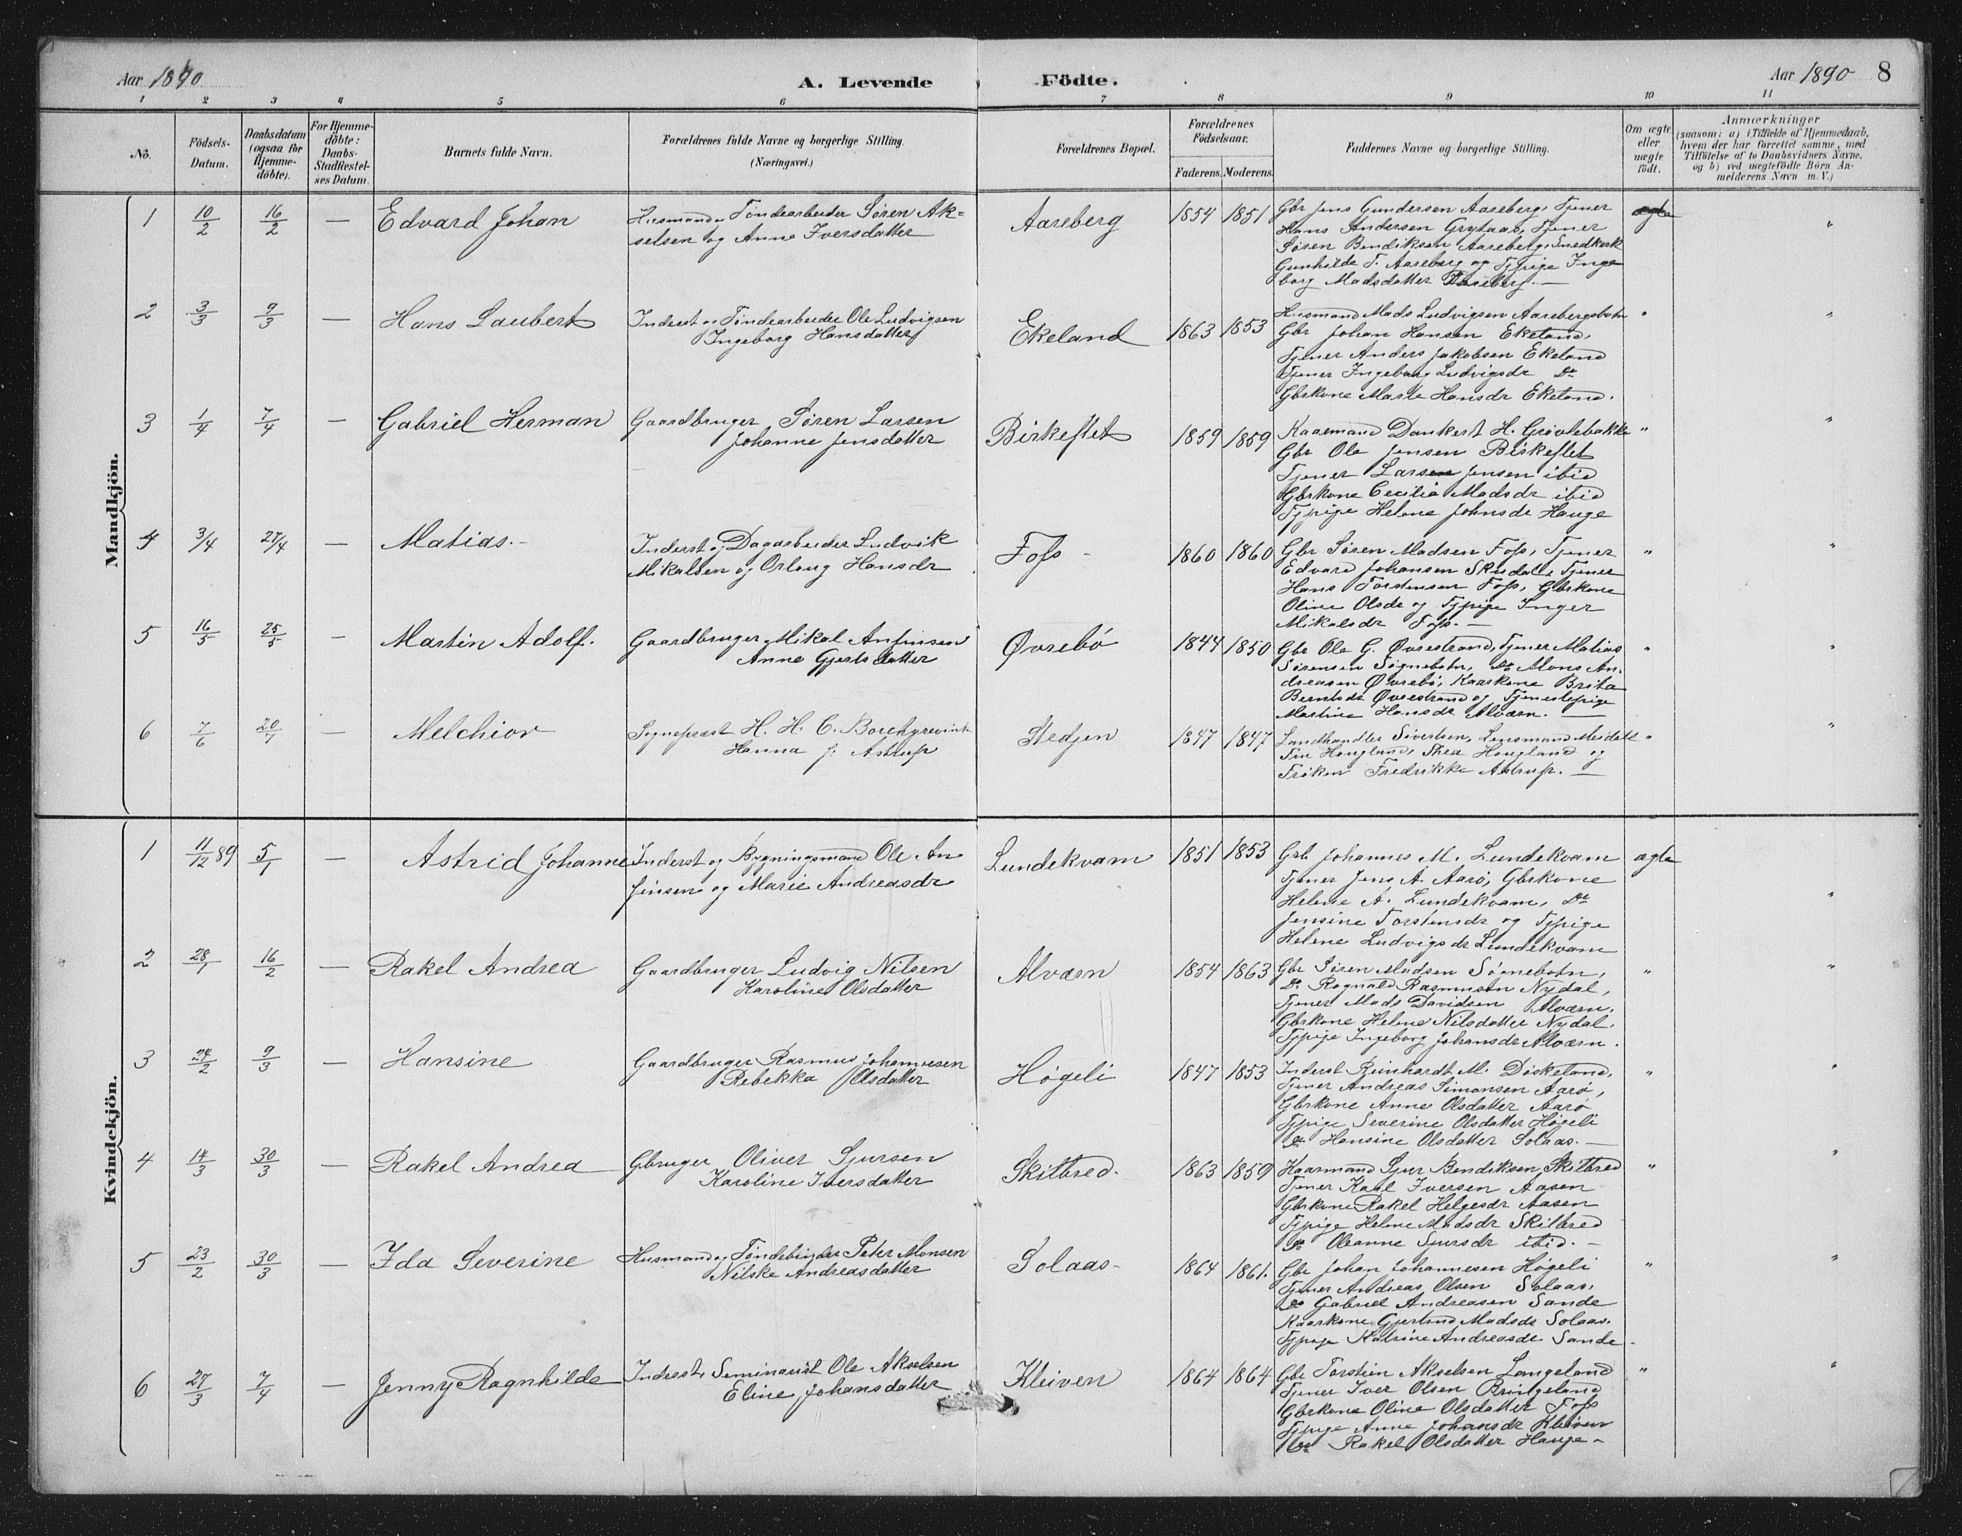 Aar 1890 A. Levende Födte. Aar 1890 8
1 2 3 4 5 6 7 8 9 10 11
No.
Födsels-Datum.
Daabsdatum (ogsaa for Hjemme-döbte).
For Hjemme-döbte: Daabs-Stadfæstel-ses Datum.
Barnets fulde Navn.
Forældrenes fulde Navne og borgerlige Stilling. (Næringsvei.)
Forældrenes Bopæl.
Forældrenes Födselsaar.
Faderens. Moderens.
Faddernes Navne og borgerlige Stilling.
Om ægte eller uægte födt.
Anmærkninger
(saasom: a) i Tilfælde af Hjemmedaab, hvem der har forrettet samme, med Tilföielse af to Daabsvidners Navne, og b) ved uegtefödte Börn An-melderens Navn m. V.)
Mandkjön.
1 10/2 16/2 — Edvard Johan
Husmand og Töndearbeider Sören Ak=
selsen og Anne Iversdatter
Aareberg 1854 1851
Gbr Jens Gundersen Aareberg, Tjener
Hans Andersen Grytaas, Tjener
Sören Bendiksen Aareberg, Smedkork
Gunhilde T. Aareberg og Tjpige Inge
borg Madsdatter Aareberg. —
ægte "
2 3/3 9/3 — Hans Laubert
Inderst og Töndearbeider Ole Ludvigsen
Ingeborg Hansdatter
Ekeland 1863 1853
Husmand Mads Ludvigsen Aarebergsbotn
Gbr Johan Hansen Ekeland,
Tjener Anders Jakobsen Ekeland
Tjener Ingeborg Ludvigsdr Do
Gbrkone Marte Hansdr Ekeland.
" "
3 1/4 7/4 — Gabriel Herman
Gaardbruger Sören Larsen
Johanne Jensdatter
Birkeflet 1859 1859
Kaarmand Dankert H. Grövlebakke
Gbr Ole Jensen Birkeflet
Tjener Larsen Jensen ibid
Gbrkone Cecilia Madsdr ibid
Tjpige Helene Johnsdr Hauge
" "
4 3/4 27/4 — Matias. -
Inderst og Dagarbeider Ludvik
Mikalsen og Orloug Hansdr
Foss - 1860 1860
Gbr Sören Madsen Foss, Tjener
Edvard Johansen Skudal, Tjener
Hans Torstensen Foss, Gbrkone
Oline Olsdr og Tjpige Inger
Mikalsdr Foss. —
" "
5 16/5 25/5 — Martin Adolf.
Gaardbruger Mikal Anfinsen
Anne Gjertsdatter
Øvrebö 1844 1850
Gbr Ole G. Övrestrand, Tjener Matias
Sörensen Sognebotn, Do Mons An.
dreasen Övrebö, Kaarkone Brita
Berntsdr Övrestrand og Tjenestepige
Martine Hansdr Alværn. —
" "
6 7/6 20/7 — Melchior
Sogneprest H. H. C. Borchgrevink
Hanna f. Astrup
Stedjen 1847 1847
Landhandler Sivertsen, Lensmand Meidell
Fru Hougland, Thea Hougland og
Fröken Fredrikke Astrup. —
" "
Kvindekjön.
1 11/12 89 5/1 — Astrid Johanne
Inderst og Bygningsmand Ole An
finsen og Marie Andreasdr
Lundekvam 1851 1853
Gbr Johannes M. Lundekvam
Tjener Jens A. Aarö, Gbrkone
Helene A. Lundekvam, Do
Jensine Torstensdr og Tjpige
Helene Ludvigsdr Lundekvam
ægte "
2 28/1 16/2 — Rakel Andrea
Gaardbruger Ludvig Nilsen
Karoline Olsdatter
Alværn 1854 1863
Gbr Sören Madsen Sognebotn,
Do Rognald Rasmussen Nydal,
Tjener Mads Davidsen Alværn,
Gbrkone Helene Nilsdatter Nydal.
Tjpige Ingeborg Johansdr Alværn.
" "
3 24/2 9/3 — Hansine
Gaardbruger Rasmus Johannesen
Rebekka Olsdatter
Högeli 1847 1853
Inderst Reinhardt M. Döskeland,
Tjener Andreas Simonsen Aarö,
Gbrkone Anne Olsdatter Aarö
Tjpige Severine Olsdatter Högeli
Do Hansine Olsdatter Solaas. —
" "
4 14/3 30/3 — Rakel Andrea
Gbruger Oliver Sjursen
Karoline Iversdatter
Skilbred. 1863 1859
Kaarmand Sjur Bendiksen Skilbred
Tjener Karl Iversen Aasen
Gbrkone Rakel Helgesdr Aasen
Tjpige Helene Madsdr Skilbred
Do Oleanne Sjursdr ibid. —
" "
5 23/2 30/3 — Ida Severine
Husmand og Töndebinder Peter Monsen
Nilske Andreasdatter
Solaas - 1864 1861.
Gbr Johan Johannesen Högeli
Tjener Andreas Olsen Solaas,
Do Gabriel Andreasen Sande
Kaarkone Gjertrud Madsdr Solaas.
Tjpige Katrine Andreasdr Sande
" "
6 27/3 7/4 — Jenny Ragnhilda
Inderst, Seminarist Ole Akselsen
Eline Johansdatter
Kleiven 1864 1864
Gbr Torstein Akselsen Langeland
Tjener Iver Olsen Bringeland
Gbrkone Oline Olsdatter Foss
Tjpige Anne Johansdr Kleiven
Do Rakel Olsdatter Hauge -
" "